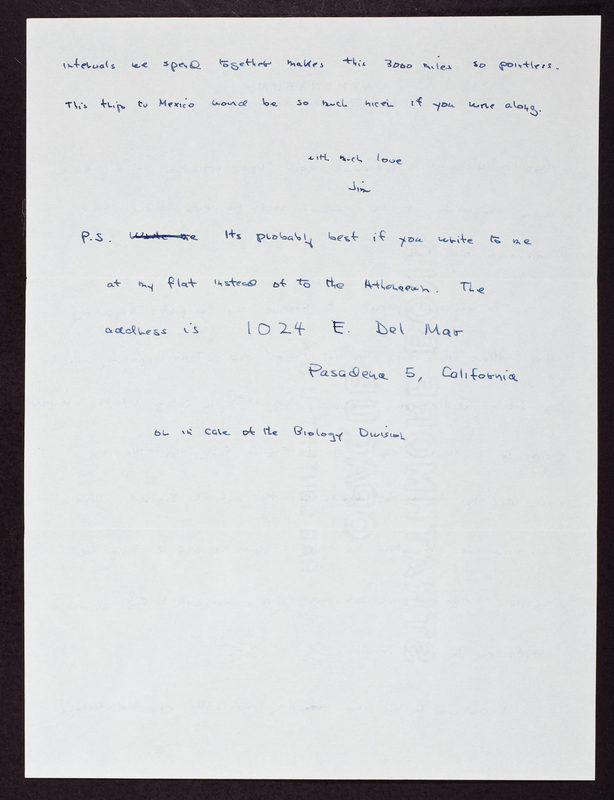 intervals we spend together makes this 3000 miles so pointless.
This trip to Mexico would be so much nicer if you were along.
with much love
Jim
P.S. Write me Its probably best if you write to me
at my flat instead of to the Athenaeum. The
address is 1024 E. Del Mar
Pasadena 5, California
or in care of the Biology Division